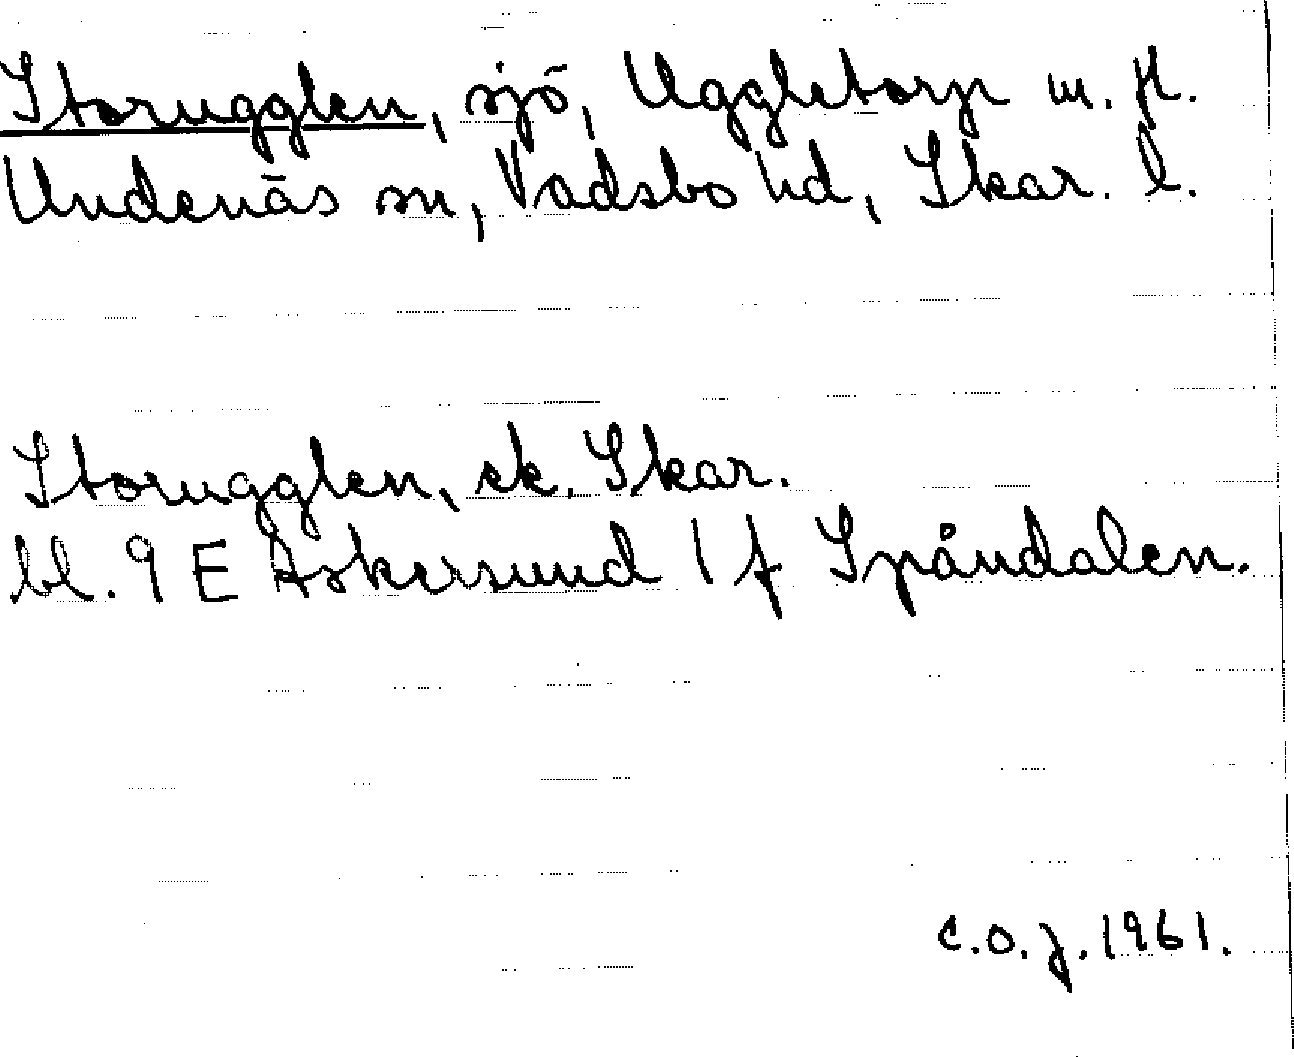 Storugglen, sjö, Uggletorp m. fl.
Undenäs sn, Vadsbo hd, Skar. l.
Storugglen, ek. Skar.
bl. 9 E Askersund 1 f Spåndalen.
C.O.J. 1961.